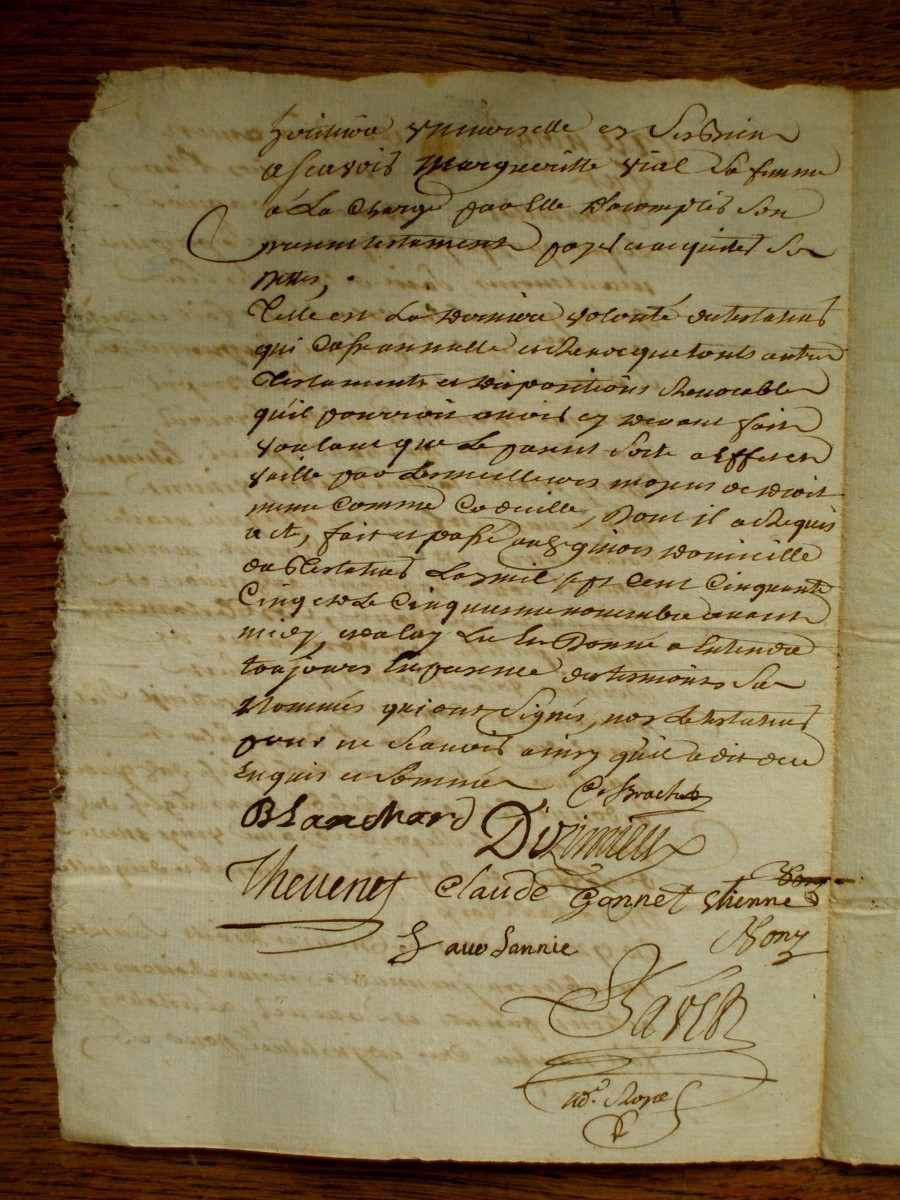 heritiere universelle et ses biens
ascavoir Margueritte vial sa femme
a La charge par Elle dacomplir son
present testament payer et acquitter ses
dettes,
Telle est La derniere volonté du testateur
qui Casse annulle et Revocque touts autres
Testaments et dispositions Revocables
quil pourroit avoir cy devant fait
voulant que Le present sorte a Effet et
vaille par Les meilleures moyens de droit
meme comme Codicille, dont il a Requis
acte, fait et passé domicille
du Testateur Lan mil sept cent cinquante
Cinq et Le Cinquieme novembre avant
midy, et a luy Lu Et Donné a Entendre
toujours En presence des temoins sus
Nommés qui ont signés, non Le testateur
pour ne scavoir ainsy quil a dit de ce
Enquis et sommé
Brachet
Blanchard Dizimieu
Thevenet Claude Gonnet etienne
Bony
Javer